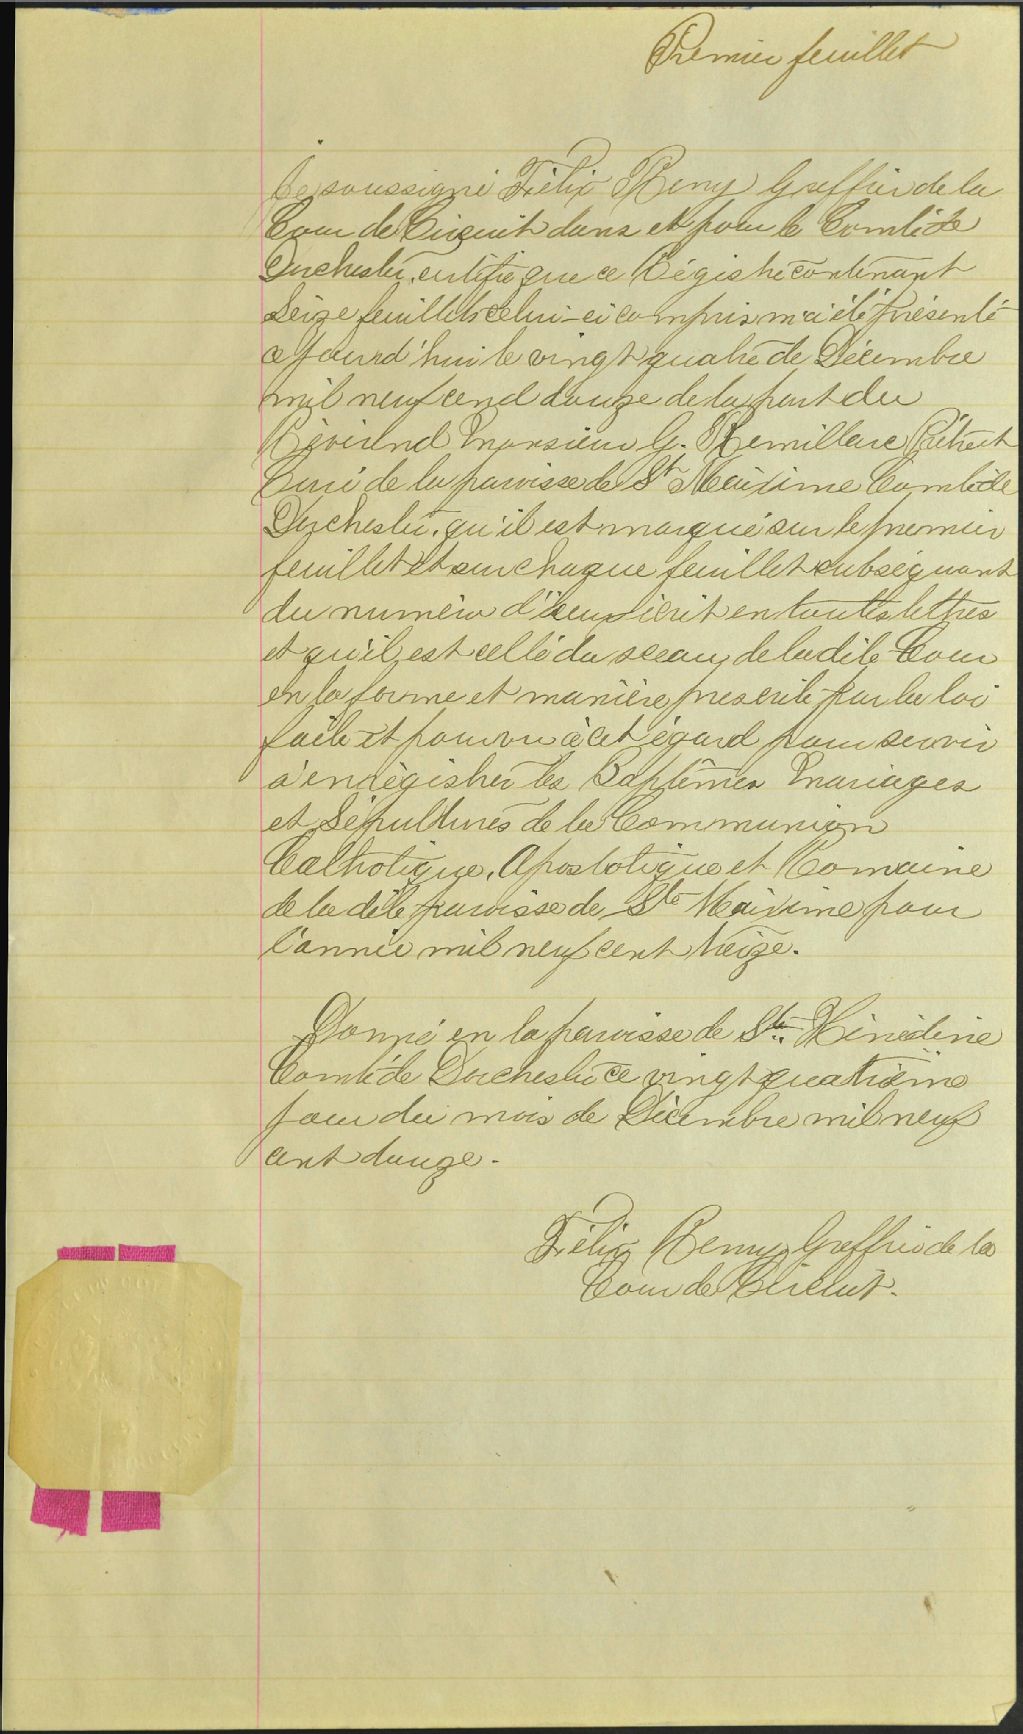 Premier feuillet
Je soussigné Félix Remy Greffier de la
Cour de Circuit dans et pour le Comté de
Dorchester, certifie que ce Régistre contenant
Seize feuillets celui-ci compris m'a été présenté
ce jourd'hui le vingt quatre de Décembre
mil neuf cend douze de la part du
Révérend Monsieur G. Remillard Prêtre et
Curé de la paroisse de Ste Maxime Comté de
Dorchester, qu'il est marqué sur le premier
feuillet et sur chaque feuillet subséquant
du numéro d'iceux écrit en toutes lettres
et qu'il est cellé du sceau de ladite Cour
en la forme et manière prescrite par la loi
faite et pourvu à cet égard pour servir
à enrégistrer les Baptêmes Mariages
et Sépultures de la Communion
Catholique, Apostolique et Romaine
de la dite paroisse de Ste Maxime pour
l'année mil neuf cent treize.
Donné en la paroisse de Ste Hénédine
Comté de Dorchester ce vingt quatrième
jour du mois de Décembre mil neuf
cent douze.
Félix Remy Greffier de la
Cour de Circuit.